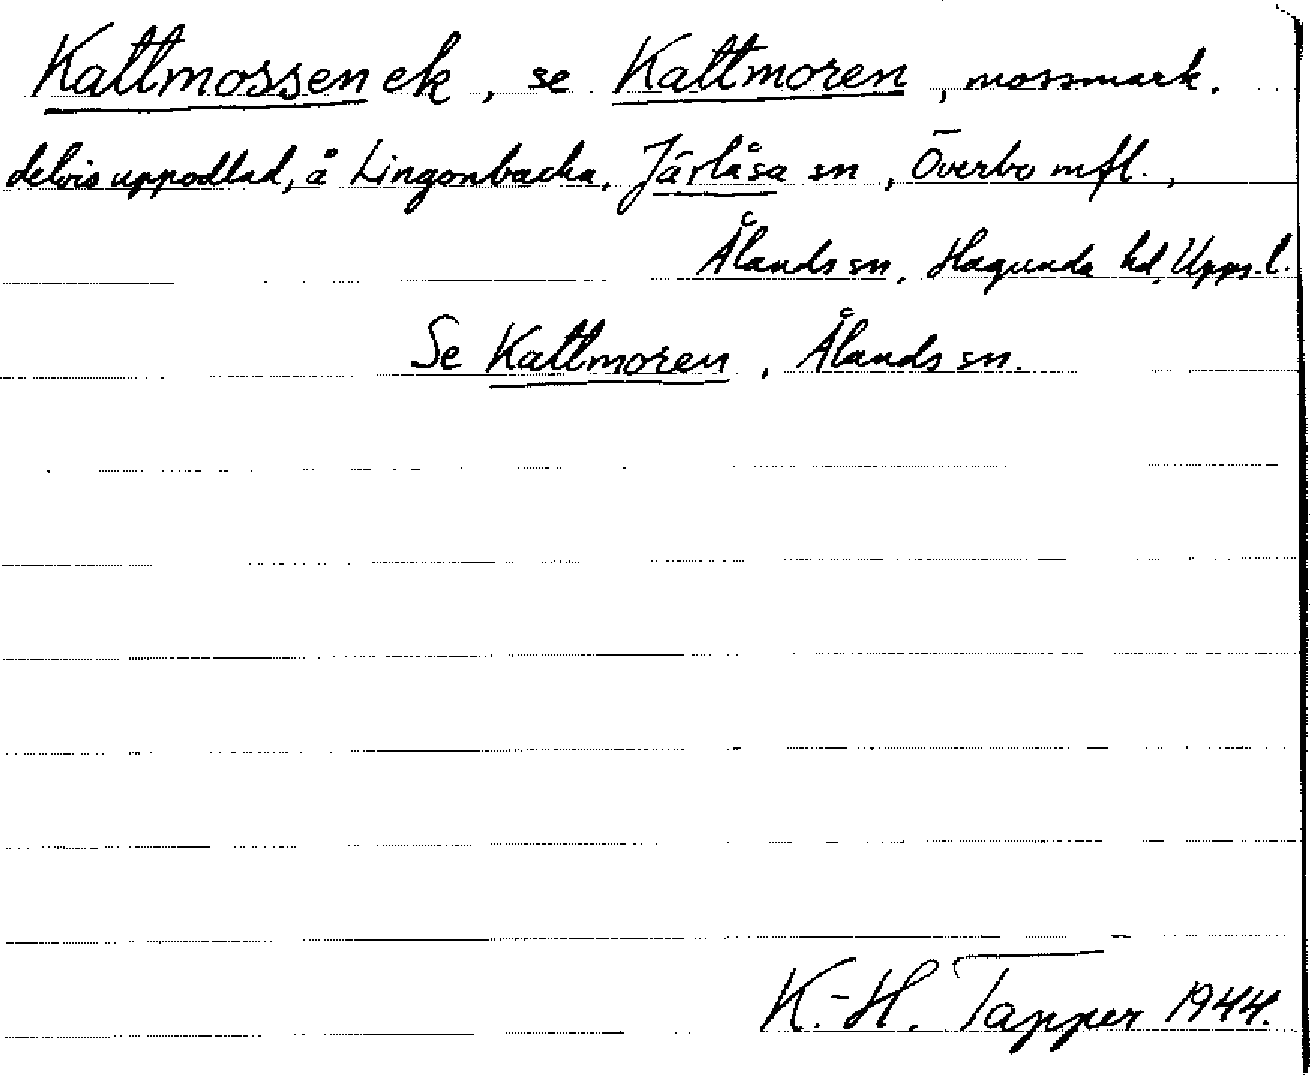 Kattmossen ek, se Kattmoren, mossmark.
delvis uppodlad, å Lingonbacka, Järlåsa sn, Överbo mfl.,
Ålands sn, Hagunda hd, Upps.l.
Se Kattmoren, Ålands sn.
K.-H. Tapper 1944.